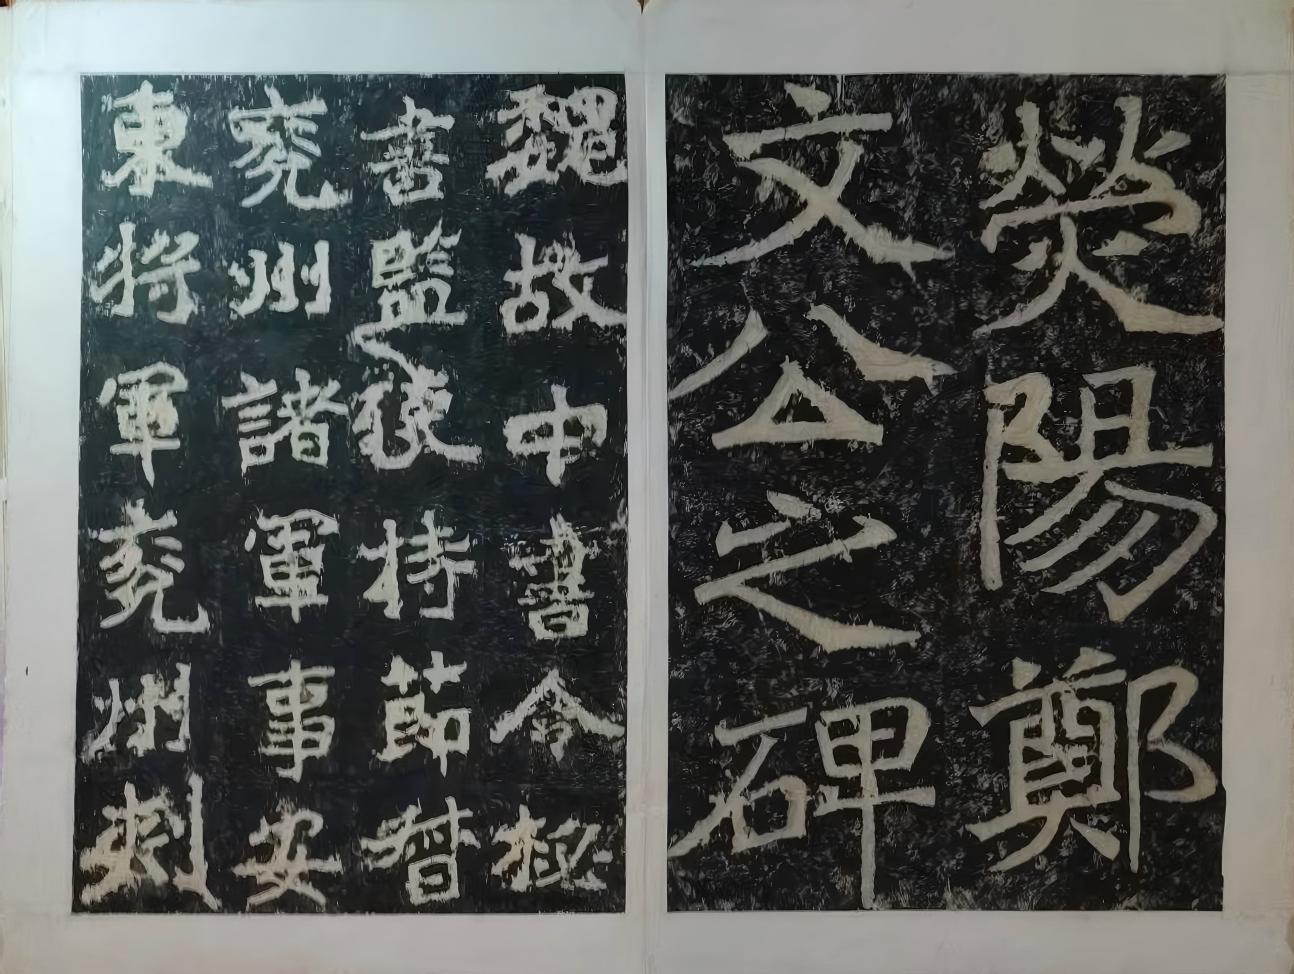 熒陽鄭
文公之碑
魏故中書令秘
書監使持節督
兗州諸軍事安
東將軍兗州刺